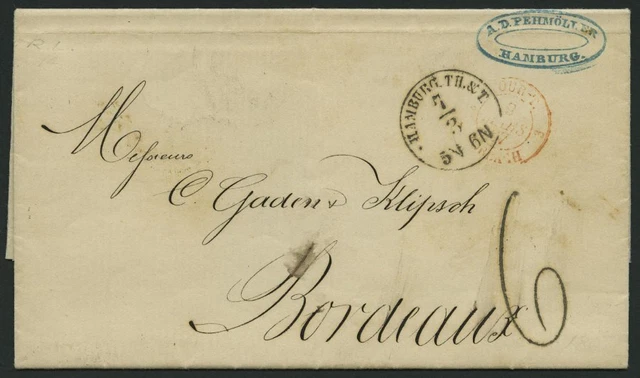 A.D. PEHMÖLLER
HAMBURG.
HAMBURG. TH. & T.
7/3
5N 6N
Messieurs
C Gaden & Klipsch
Bordeaux
6